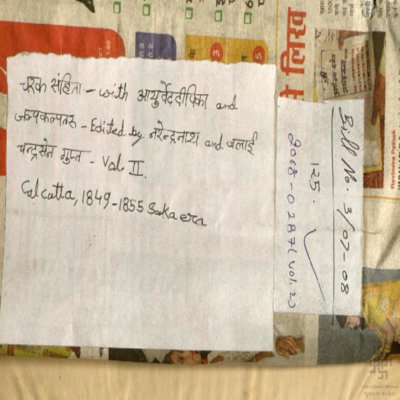 चरक संहिता - with आयुर्वेददीपिका and
जल्पकल्पतरु - Edited by नरेन्द्रनाथ and बलाई
चन्द्रसेन गुप्त - Vol. II.
Calcutta, 1849-1855 Saka era
Bill No. 3/07-08
125.
2008-0287 (Vol. 2)
से लिख
3
5